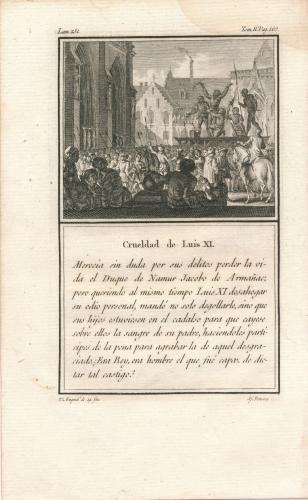 Lam. 251. Tom. II. Pag. 167.
Crueldad de Luis XI.
Merecía sin duda por sus delitos perder la vi-
da el Duque de Namur Jacobo de Armañac;
pero queriendo al mismo tiempo Luis XI desahogar
su odio personal, mandó no solo degollarle, sino que
sus hijos estuviesen en el cadalso para que cayese
sobre ellos la sangre de su padre, haciéndolos partí-
cipes de la pena para agrabar la de aquel desgra-
ciado: ¿Era Rey, era hombre el que fué capaz de dic-
tar tal castigo?